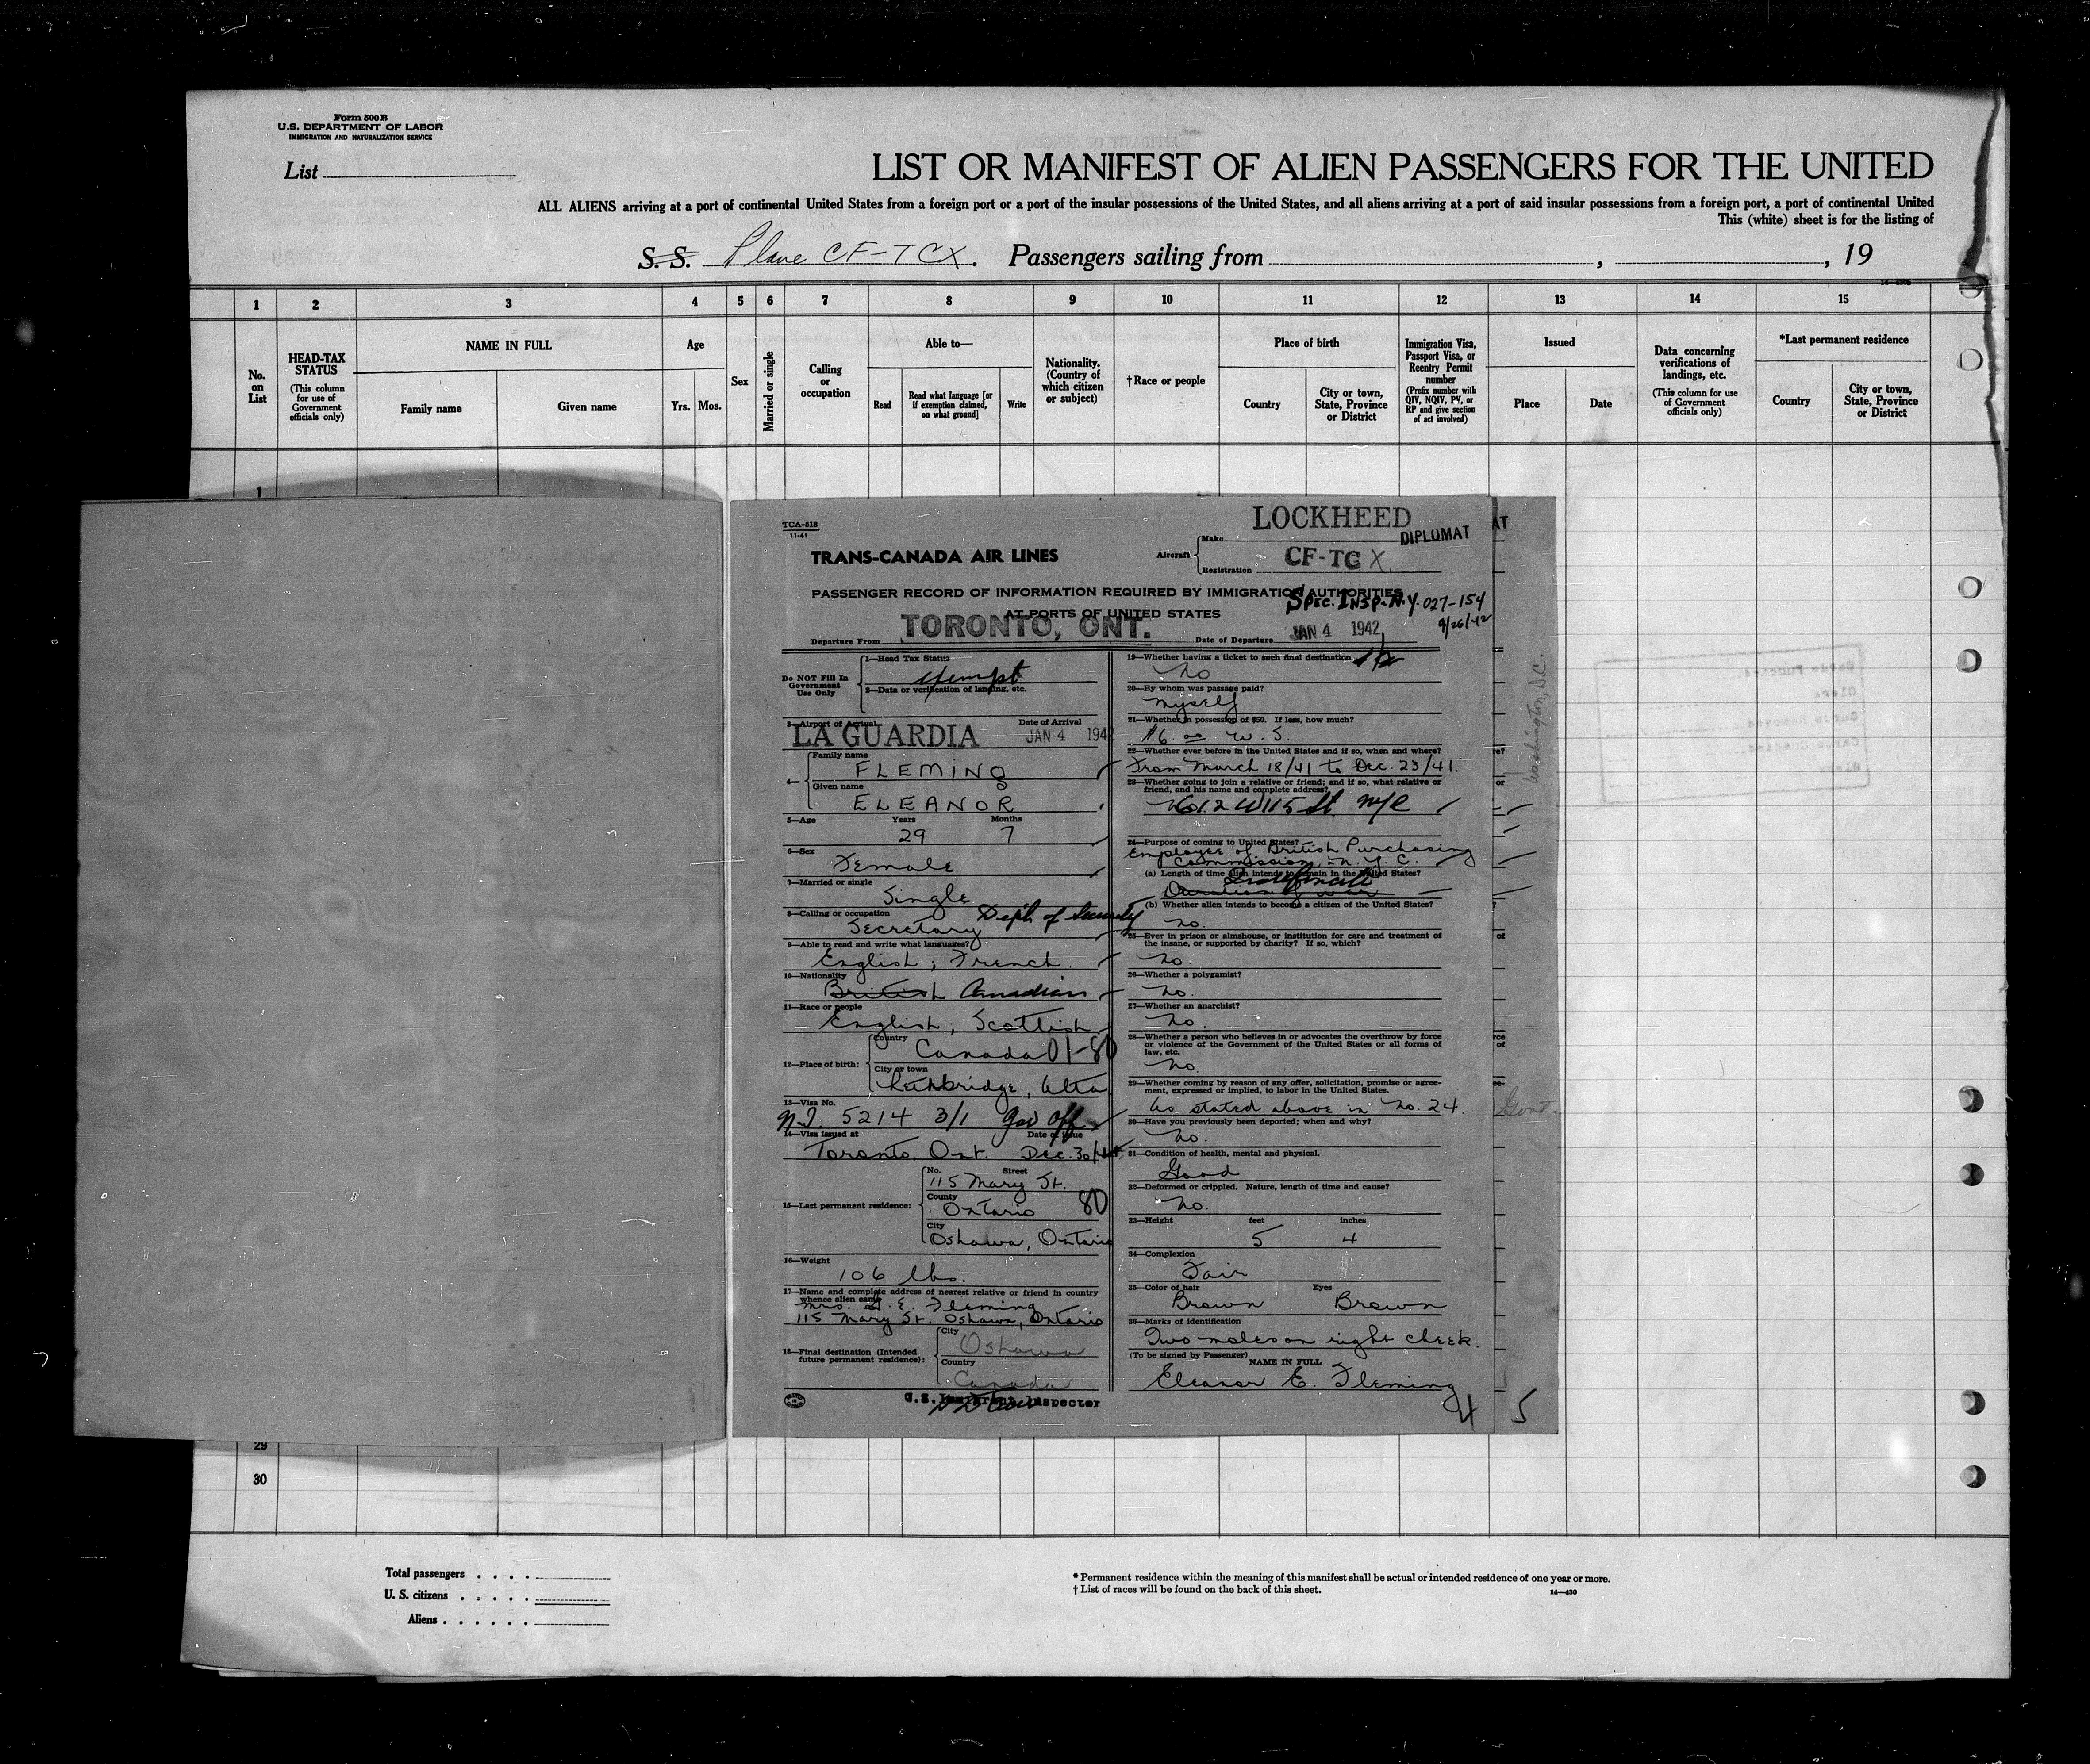 Form 500 B
U.S. DEPARTMENT OF LABOR
IMMIGRATION AND NATURALIZATION SERVICE
List
LIST OR MANIFEST OF ALIEN PASSENGERS FOR THE UNITED
ALL ALIENS arriving at a port of continental United States from a foreign port or a port of the insular possessions of the United States, and all aliens arriving at a port of said insular possessions from a foreign port, a port of continental United
This (white) sheet is for the listing of
S. S. Plane CF-TCX. Passengers sailing from , , 19
1 2 3 4 5 6 7 8 9 10 11 12 13 14 15
No. on List
HEAD-TAX STATUS
(This column for use of Government officials only)
NAME IN FULL
Family name
Given name
Age
Yrs. Mos.
Sex
Married or single
Calling or occupation
Able to—
Read
Read what language [or if exemption claimed, on what ground]
Write
Nationality. (Country of which citizen or subject)
†Race or people
Place of birth
Country
City or town, State, Province or District
Immigration Visa, Passport Visa, or Reentry Permit number
(Prefix number with QIV, NQIV, PV, or RP and give section of act involved)
Issued
Place
Date
Data concerning verifications of landings, etc.
(This column for use of Government officials only)
*Last permanent residence
Country
City or town, State, Province or District
1
TCA-518
11-41
TRANS-CANADA AIR LINES
Aircraft
Make LOCKHEED
DIPLOMAT
Registration CF-TCX
PASSENGER RECORD OF INFORMATION REQUIRED BY IMMIGRATION AUTHORITIES
AT PORTS OF UNITED STATES
Spec. Insp. N.Y. 027-154
9/26/42
Departure From TORONTO, ONT.
Date of Departure JAN 4 1942
Do NOT Fill In Government Use Only
1—Head Tax Status
exempt
2—Data or verification of landing, etc.
3—Airport of Arrival
LA GUARDIA
Date of Arrival
JAN 4 1942
4—
Family name
FLEMING
Given name
ELEANOR
5—Age Years Months
29 7
6—Sex
Female
7—Married or single
Single
8—Calling or occupation
Secretary
9—Able to read and write what languages?
English; French
10—Nationality
British Canadian
11—Race or people
English; Scottish
12—Place of birth:
Country
Canada 01-80
City or town
Lethbridge, Alta
13—Visa No.
5214 3/1 Gov Off
14—Visa issued at Date of Issue
Toronto, Ont. Dec. 30/41
15—Last permanent residence:
No. Street
115 Mary St.
County
Ontario 80
City
Oshawa, Ontario
16—Weight
106 lbs.
17—Name and complete address of nearest relative or friend in country whence alien came
Mrs. E. Fleming
115 Mary St. Oshawa, Ontario
18—Final destination (Intended future permanent residence):
City
Oshawa
Country
Canada
U.S. Immigrant Inspector
19—Whether having a ticket to such final destination
No
20—By whom was passage paid?
Myself
21—Whether in possession of $50. If less, how much?
22—Whether ever before in the United States and if so, when and where?
From March 18/41 to Dec. 23/41.
23—Whether going to join a relative or friend; and if so, what relative or friend, and his name and complete address?
612 W 115 St. NYC
24—Purpose of coming to United States?
Employee of British Purchasing
Commission, N.Y.C.
(a) Length of time alien intends to remain in the United States?
Indefinite
Duration of war
(b) Whether alien intends to become a citizen of the United States?
No.
25—Ever in prison or almshouse, or institution for care and treatment of the insane, or supported by charity? If so, which?
No.
26—Whether a polygamist?
No.
27—Whether an anarchist?
No.
28—Whether a person who believes in or advocates the overthrow by force or violence of the Government of the United States or all forms of law, etc.
No.
29—Whether coming by reason of any offer, solicitation, promise or agreement, expressed or implied, to labor in the United States.
As stated above in No. 24.
30—Have you previously been deported; when and why?
No.
31—Condition of health, mental and physical.
Good
32—Deformed or crippled. Nature, length of time and cause?
No.
33—Height feet inches
5 4
34—Complexion
Fair
35—Color of hair Eyes
Brown Brown
36—Marks of identification
Two moles on right cheek.
(To be signed by Passenger) NAME IN FULL
Eleanor E. Fleming
4 5
Washington, D.C.
Govt.
29
30
Total passengers
U. S. citizens
Aliens
* Permanent residence within the meaning of this manifest shall be actual or intended residence of one year or more.
† List of races will be found on the back of this sheet.
14—430